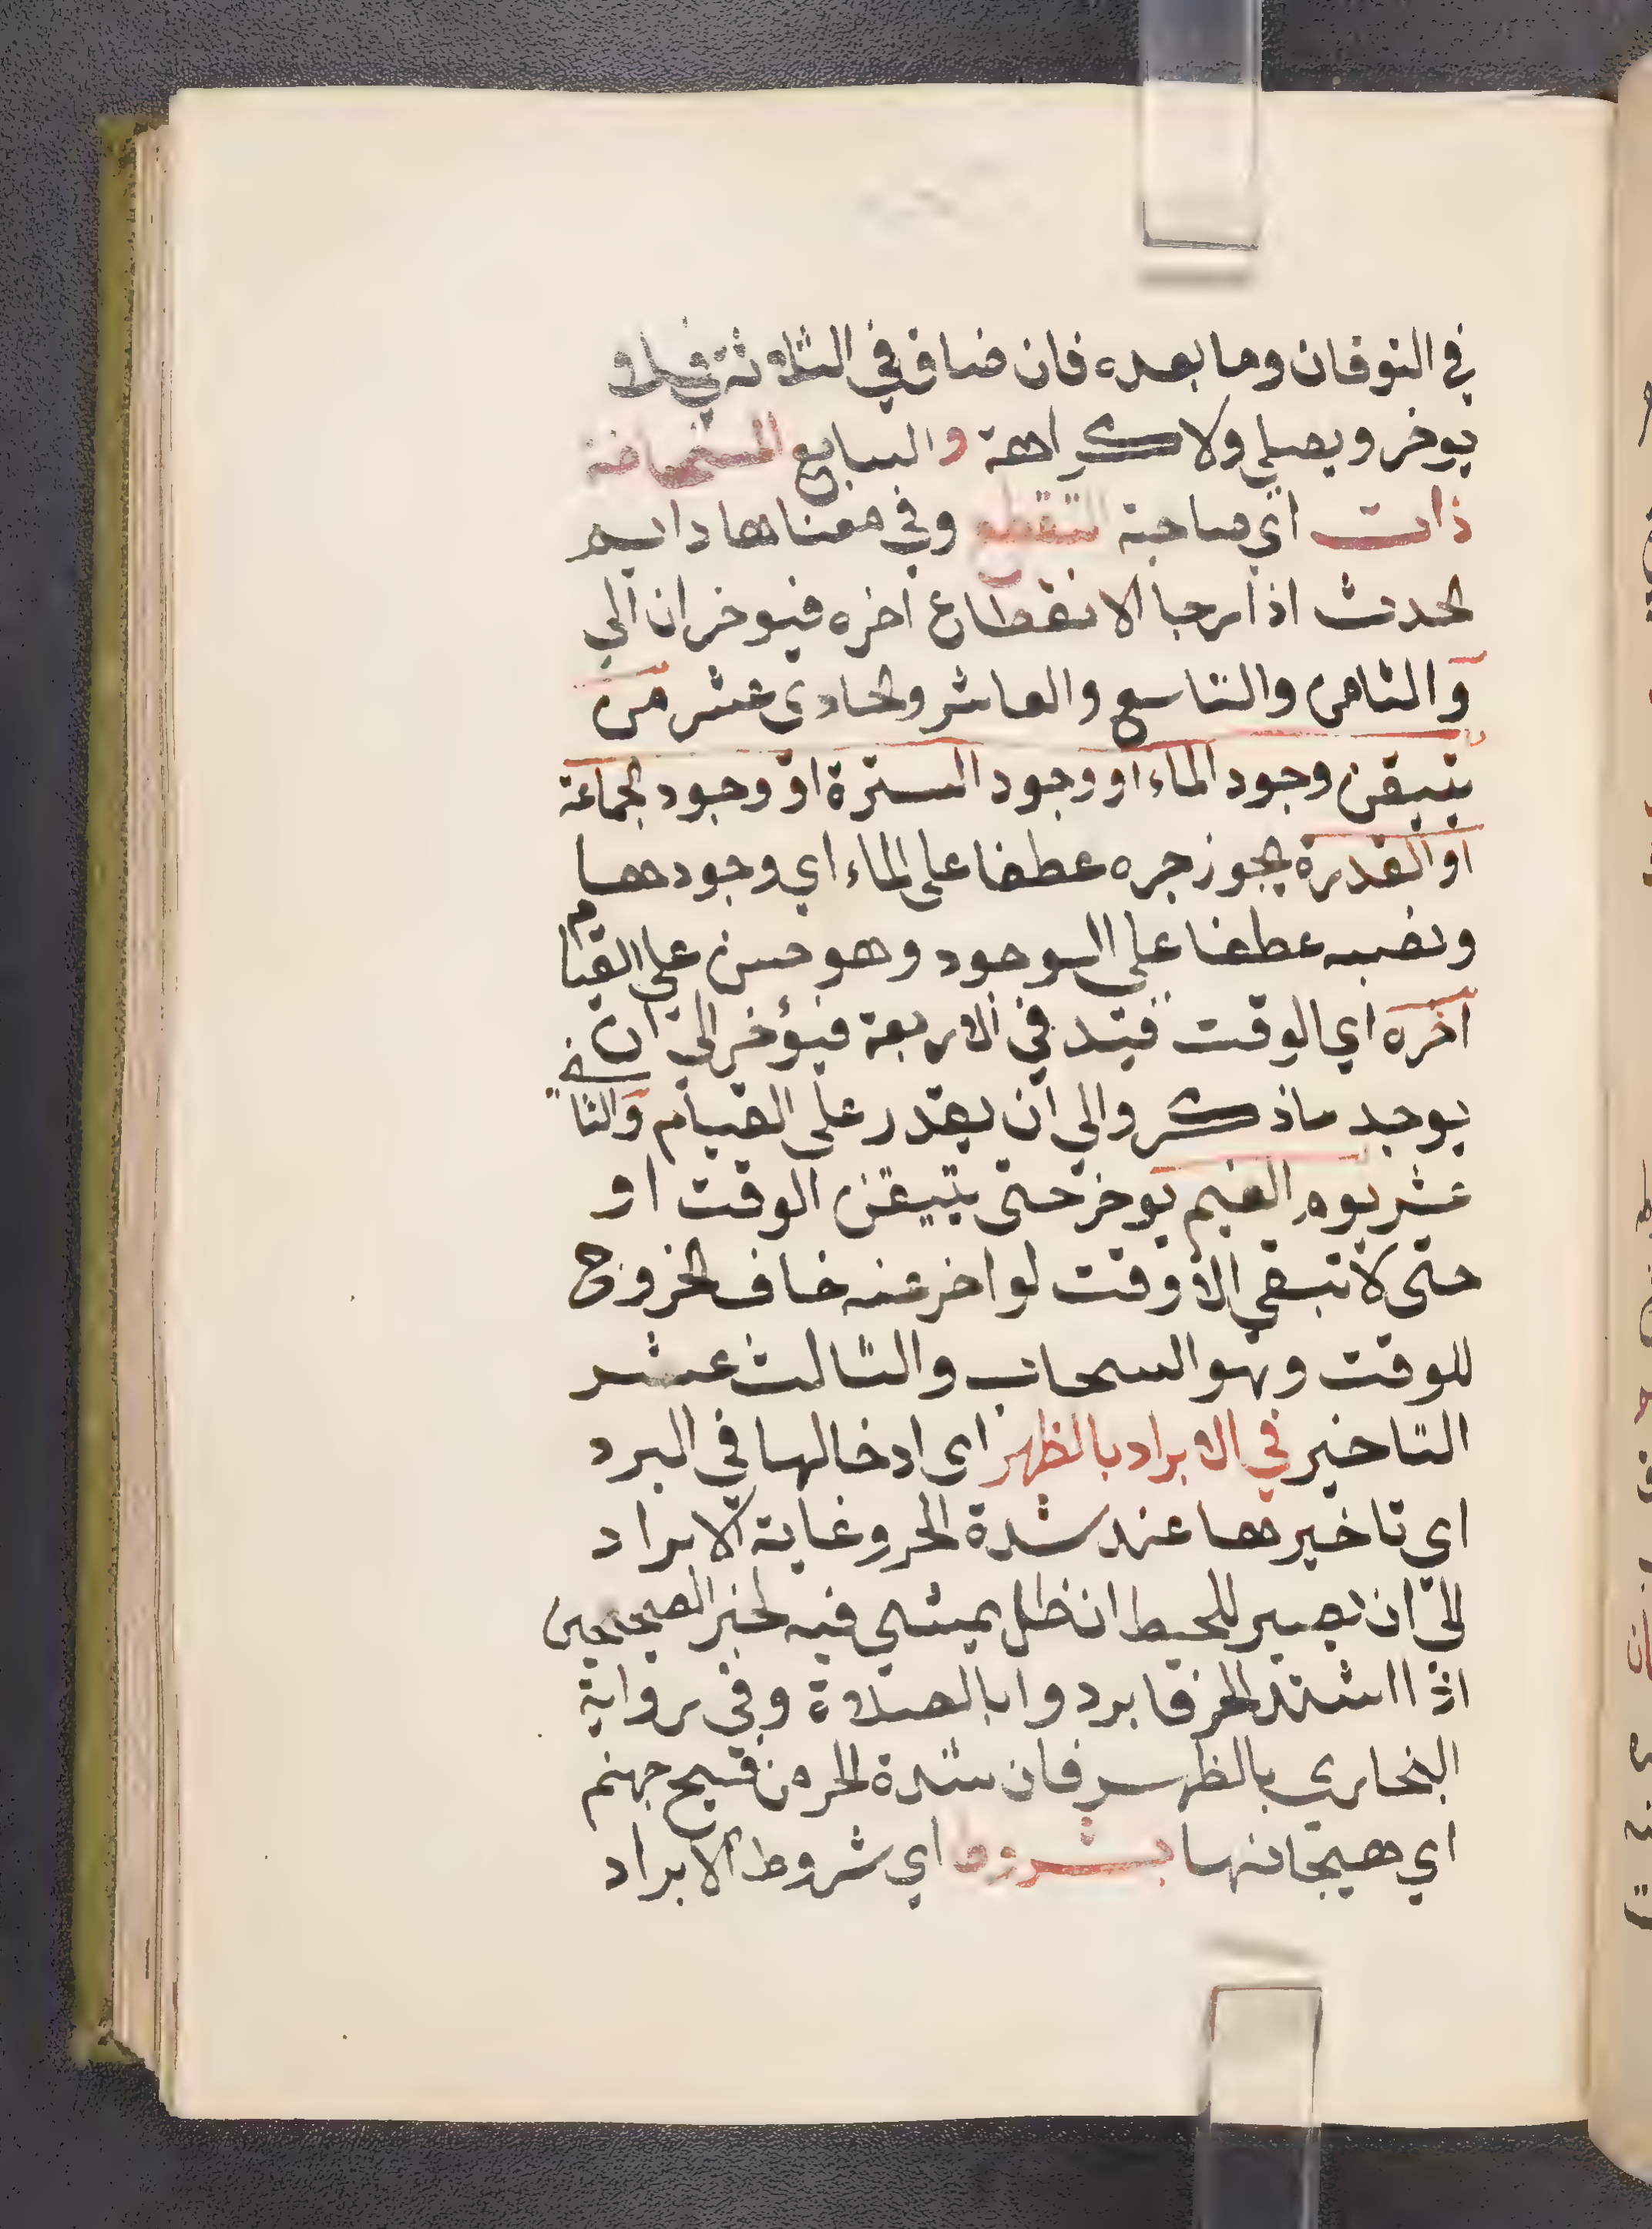 في التوقان وما بعده فان ضاق في الثلاثة فلا و
يوخر ويصلي ولا كراهة والسابع المستحاضة
ذات اي صاحبة التقطع وفي معناها دايم
الحدث اذا رجا الانقطاع اخره فيوخر ان الي
والثامن والتاسع والعاشر والحادى عشر من
يتيقن وجود الماء او وجود السترة او وجود الجماعة
او القدرة يجوز جره عطفا على الماء اي وجودها
ونصبه عطفا على الوجود وهو حسن على القيام
اخره اي الوقت قيد في الاربعة فيؤخر الي ان
يوجد ماذكر والي ان يقدر على القيام والثاني
عشر يوم الغيم يوخر حتى يتيقن الوقت او
حتى لا تبقي الا وقت لو اخر عنه خاف الخروج
للوقت وهو السحاب والثالث عشر
التاخير في الابراد بالظهر اى ادخالها في البرد
اي تاخيرها عند شدة الحر وغاية الابراد
الي ان يصير للحيطان ظل يمشي فيه لخبر الصحيحين
اذا اشتد الحر فابردوا بالصلاة وفي رواية
البخارى بالظهر فان شدة الحر من فيح جهنم
اي هيجانها بشروط اي شروط الابراد